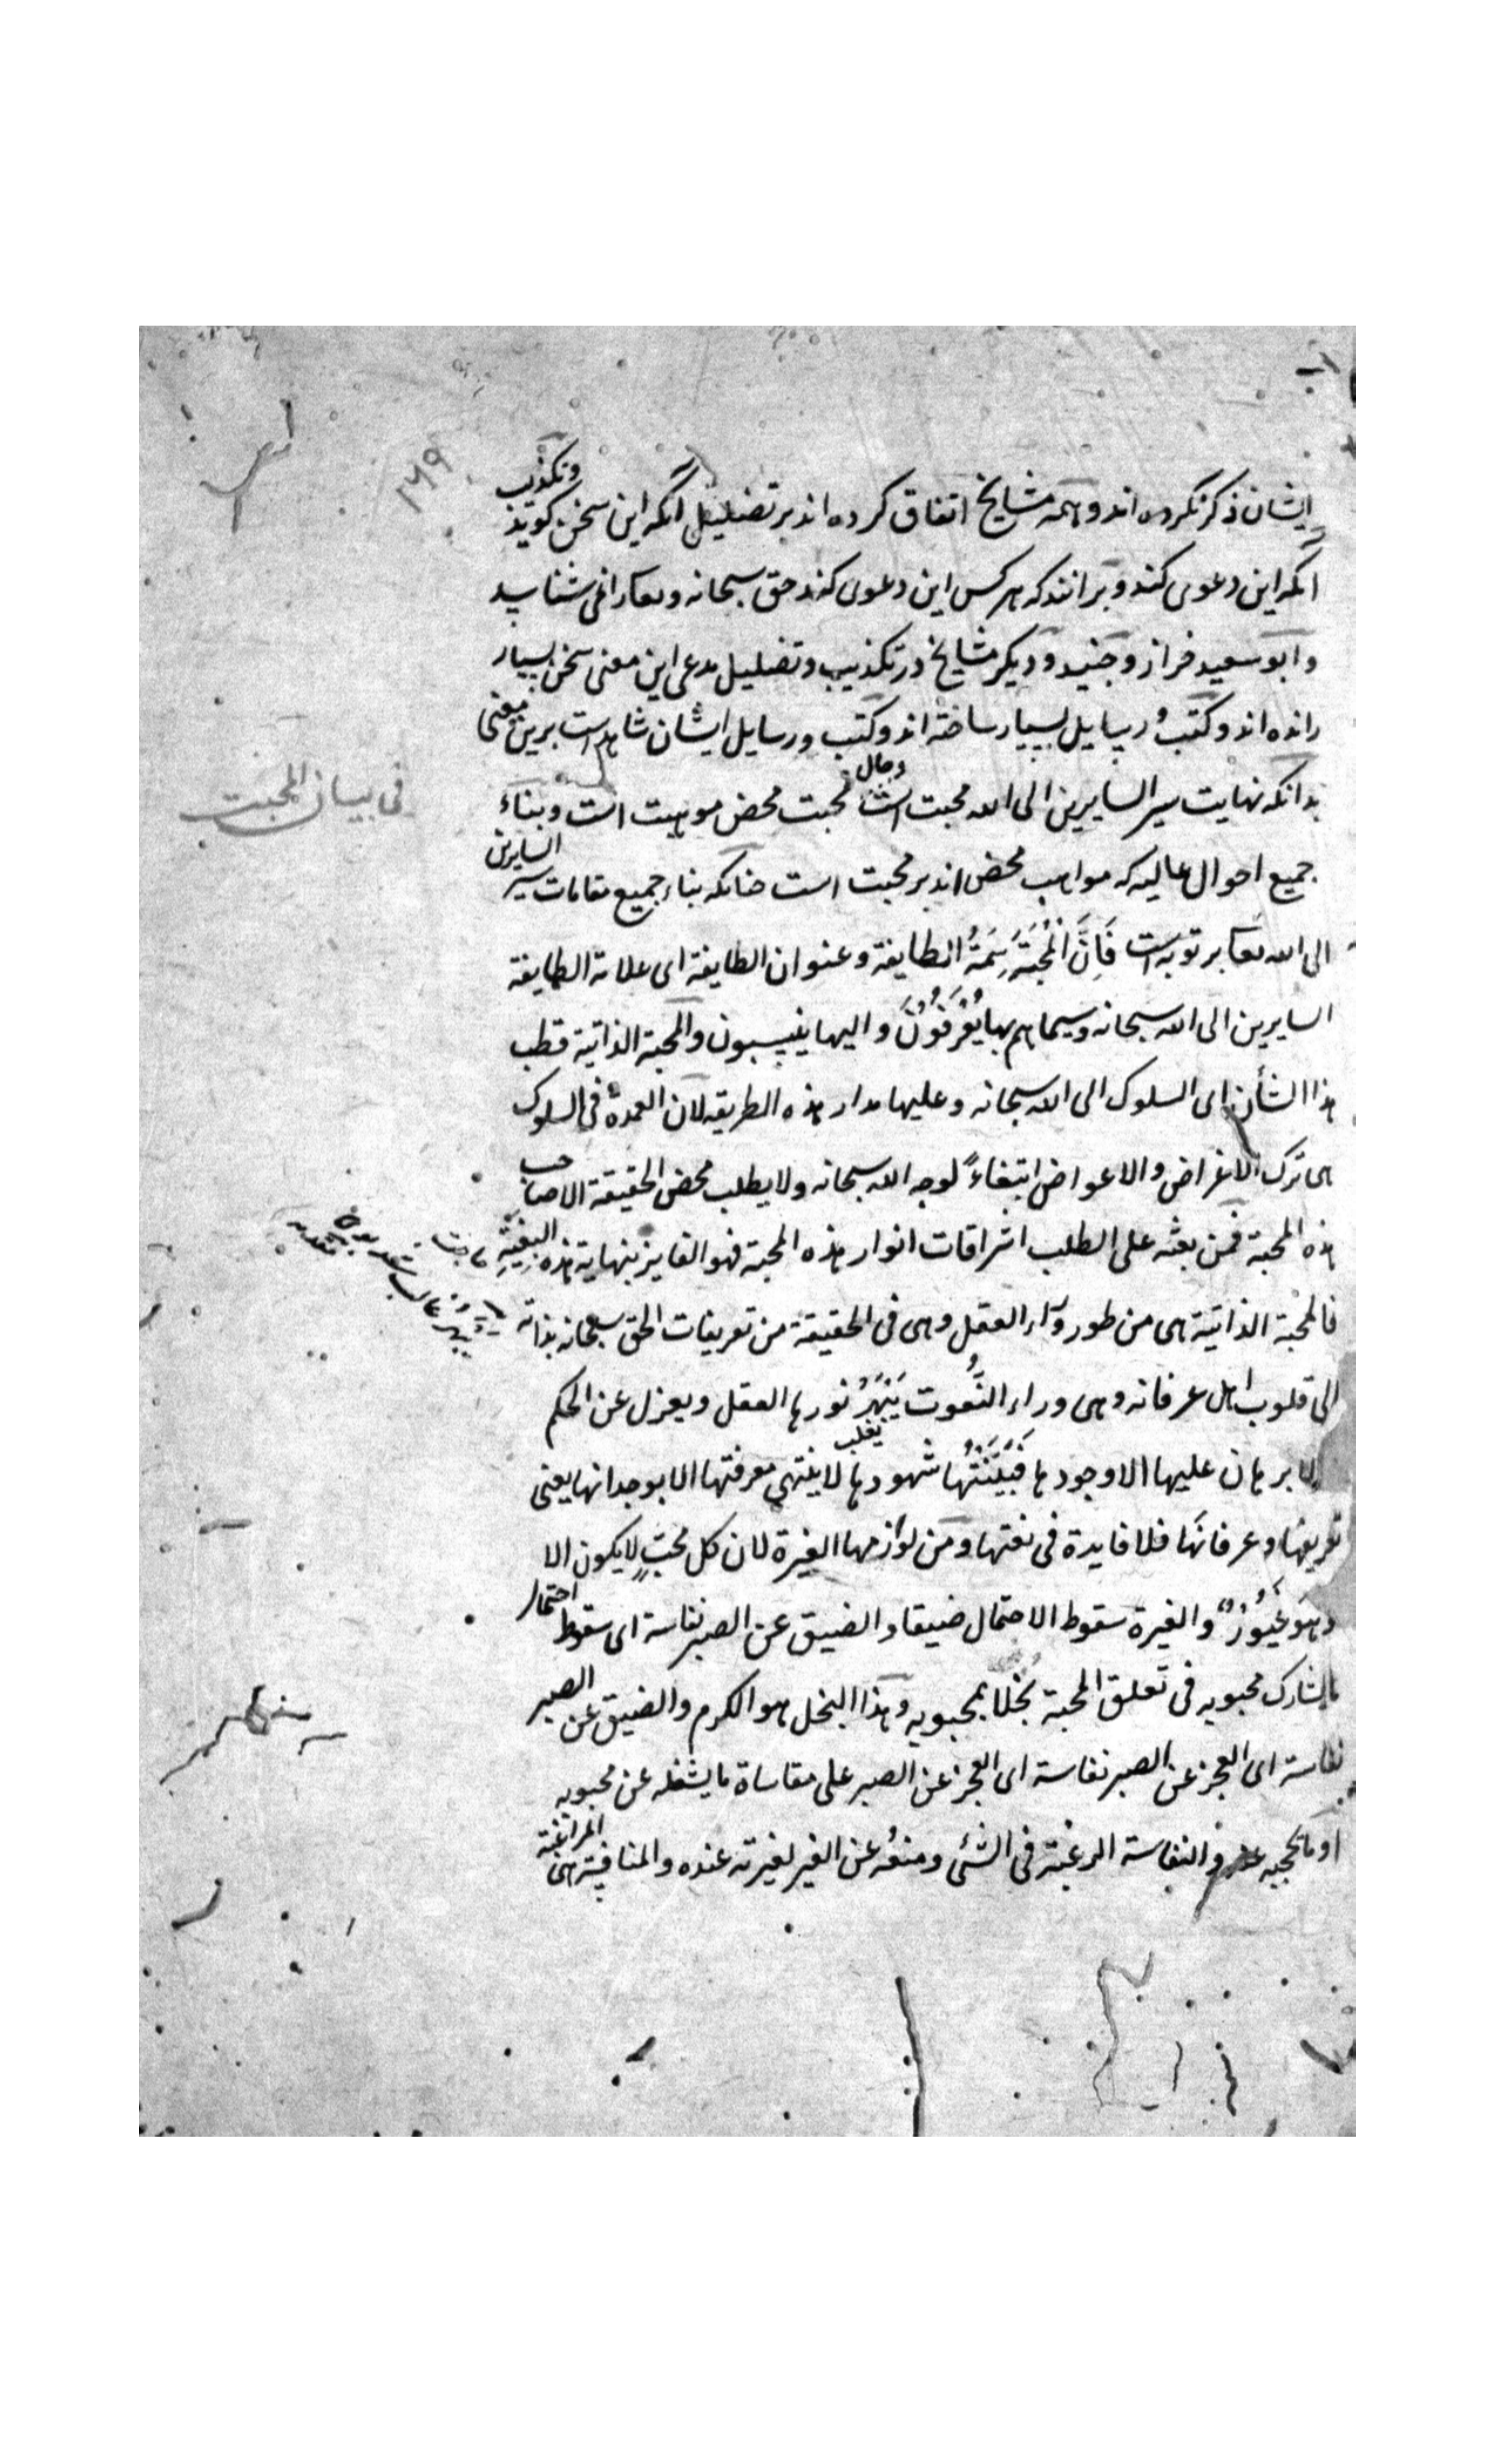 ۱۶۹
ایشان ذکر نکرده اند و همه مشایخ اتفاق کرده اند بر تضلیل آنکه این سخن کوید و تکذیب
آنکه این دعوی کند و برانند که هرکس این دعوی کند حق سبحانه و تعا را نمی شناسد
و ابو سعید خراز و جنید و دیکر مشایخ در تکذیب و تضلیل مدعی این معنی سخن بسیار
رانده اند و کتب و رسایل بسیار ساخته اند و کتب و رسایل ایشان شاهدست برین معنی
بدانکه نهایت سیر السایرین الی الله محبت است و حال محبت محض موهبت است و بناء
فی بیان المحبت
جمیع احوال عالیه که مواهب محض اند بر محبت است جنانکه بناء جمیع مقامات سیر السایرین
الی الله تعا بر توبه است فَاِنَّ الْمُحَبَّةَ سِمَةُ الطایفة و عنوان الطایفة ای علامة الطایفة
السایرین الی الله سبحانه و سیماهم بها یُعْرَفُوْنَ و الیها ینسبون و المحبة الذاتیة قطب
هذا الشأن ای السلوک الی الله سبحانه و علیها مدار هذه الطریقه لان العمدة فی السلوک
هی ترک الاغراض و الاعواض ابتغاءً لوجه الله سبحانه و لا یطلب محض الحقیقة الا صاحب
هذه المحبة فمن بعثه علی الطلب اشراقات انوار هذه المحبة فهو الفایز بنهایة هذه البِغْیَةِ
فالمحبة الذاتیة هی من طور ورآء العقل و هی فی الحقیقة من تعریفات الحق سبحانه بذاته
الی قلوب اهل عرفانه و هی وراء النُّعوت یَبْهَرُ نورها العقل و یعزل عن الحکم
لا برهان علیها الا وجودها فَبَیِّنَتُها شهودها یغلب لا ینتهی معرفتها الا بوجدانها یعنی
تعریفها و عرفانها فلا فایدة فی نعتها و من لوازمها الغیرة لان کل محبٍّ لا یکون الا
و هو غَیُوْرٌ و الغیرة سقوط الاحتمال ضیقا و الضیق عن الصبر نفاسة ای سقوط احتمال
ما یشارک محبوبه فی تعلق المحبة بُخلا بمحبوبه و هذا البخل هو الکرم و الضیق عن الصبر
نفاسة ای العجز عن الصبر نفاسة ای العجز عن الصبر علی مقاساة ما یشغله عن محبوبه
او ما یحجبه عنه و النفاسة الرغبة فی الشئ و منعُه عن الغیر لغیرته عنده و المنافسة هی المراغبة